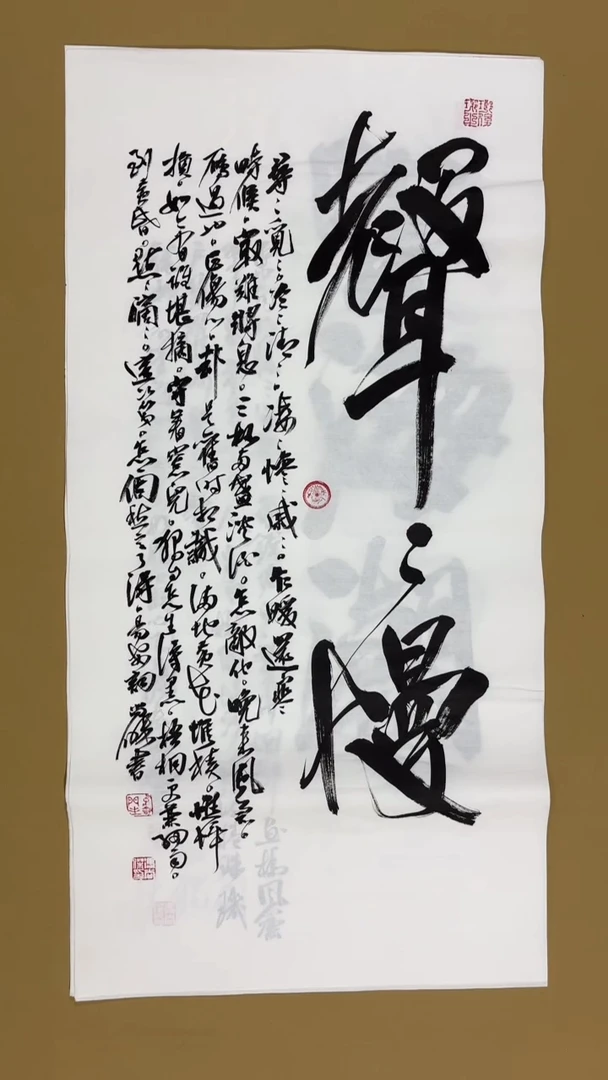 聲々慢
尋々覓々。冷々清々。凄々惨々戚々。乍暖還寒
時候。最難將息。三杯兩盞淡酒。怎敵他。晚來風急。
雁過也。正傷心。却是舊時相識。滿地黃花堆積。憔悴
損。如今有誰堪摘。守着窗兒。獨自怎生得黑。梧桐更兼細雨。
到黃昏。點々滴々。這次第。怎一個愁字了得。易安詞 書